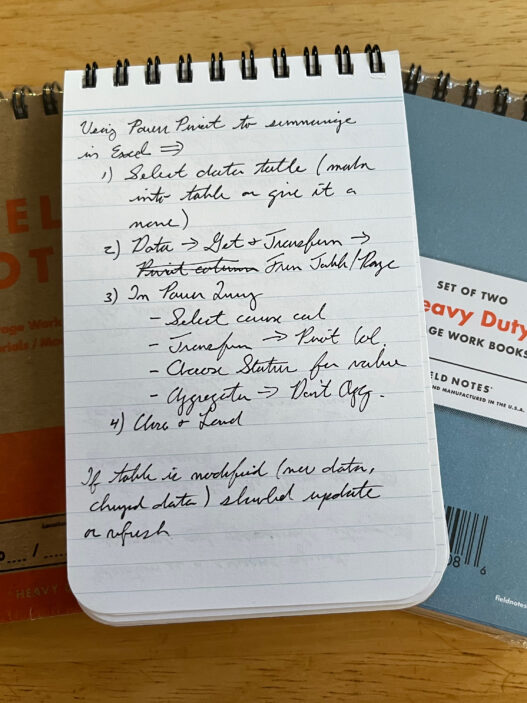 Using Power Pivot to summarize
in Excel ⇒
1) Select data table (make
into table or give it a
name)
2) Data → Get & Transform →
Pivot column From Table/Range
3) In Power Query
- Select course col
- Transform → Pivot Col.
- Choose Status for value
- Aggregate → Don't Agg.
4) Close & Load
If table is modified (new data,
changed data) should update
on refresh
EL
OT
age Work
rials / Mo
"HEAVY
SET OF TWO
eavy Duty
GE WORK BOOKS
ELD NOTES®
ND MANUFACTURED IN THE U.S.A.
08 6
fieldnotes